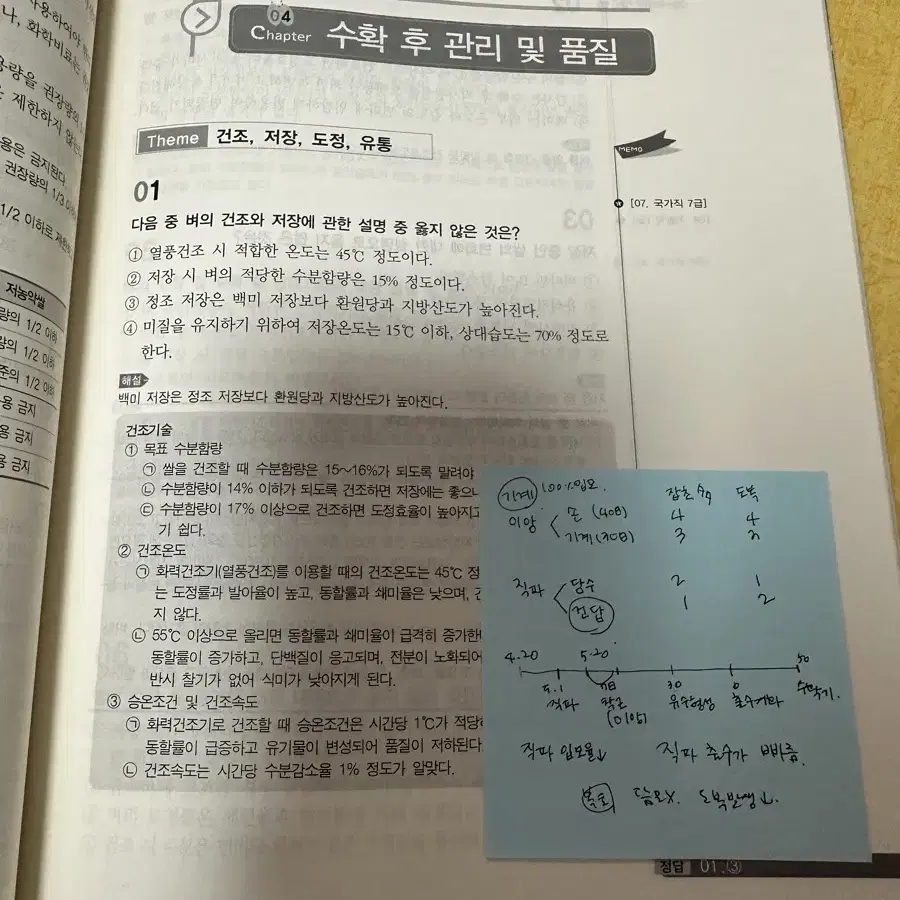 사용하여야
나, 화학비료는
용량을 권장량의
은 제한하지 않는
용은 금지된다.
권장량의 1/3 이
1/2 이하로 제한
저농약쌀
량의 1/2 이하
량의 1/2 이하
준의 1/2 이하
용 금지
용 금지
용 금지
04
Chapter 수확 후 관리 및 품질
Theme 건조, 저장, 도정, 유통
MEMO
01
[07. 국가직 7급]
다음 중 벼의 건조와 저장에 관한 설명 중 옳지 않은 것은?
① 열풍건조 시 적합한 온도는 45℃ 정도이다.
② 저장 시 벼의 적당한 수분함량은 15% 정도이다.
③ 정조 저장은 백미 저장보다 환원당과 지방산도가 높아진다.
④ 미질을 유지하기 위하여 저장온도는 15℃ 이하, 상대습도는 70% 정도로
한다.
해설
백미 저장은 정조 저장보다 환원당과 지방산도가 높아진다.
건조기술
① 목표 수분함량
㉠ 쌀을 건조할 때 수분함량은 15~16%가 되도록 말려야
㉡ 수분함량이 14% 이하가 되도록 건조하면 저장에는 좋으나
㉢ 수분함량이 17% 이상으로 건조하면 도정효율이 높아지고
기 쉽다.
② 건조온도
㉠ 화력건조기(열풍건조)를 이용할 때의 건조온도는 45℃ 정
는 도정률과 발아율이 높고, 동할률과 쇄미율은 낮으며, 건
지 않다.
㉡ 55℃ 이상으로 올리면 동할률과 쇄미율이 급격히 증가한
동할률이 증가하고, 단백질이 응고되며, 전분이 노화되어
반시 찰기가 없어 식미가 낮아지게 된다.
③ 승온조건 및 건조속도
㉠ 화력건조기로 건조할 때 승온조건은 시간당 1℃가 적당하
동할률이 급증하고 유기물이 변성되어 품질이 저하된다.
㉡ 건조속도는 시간당 수분감소율 1% 정도가 알맞다.
기계 100%입모. 잡초 수 도복
이앙 손 (40日) 4 4
기계 (30日) 3 2
직파 담수 2 1
건답 1 2
4.20 5.20 50
5.1 30 0 수확기.
직파 착근 유수형성 출수개화
(이앙)
직파 입모율↓ 직파 출수가 빠름.
복토 담요X. 도복발생↓.
정답 01.③